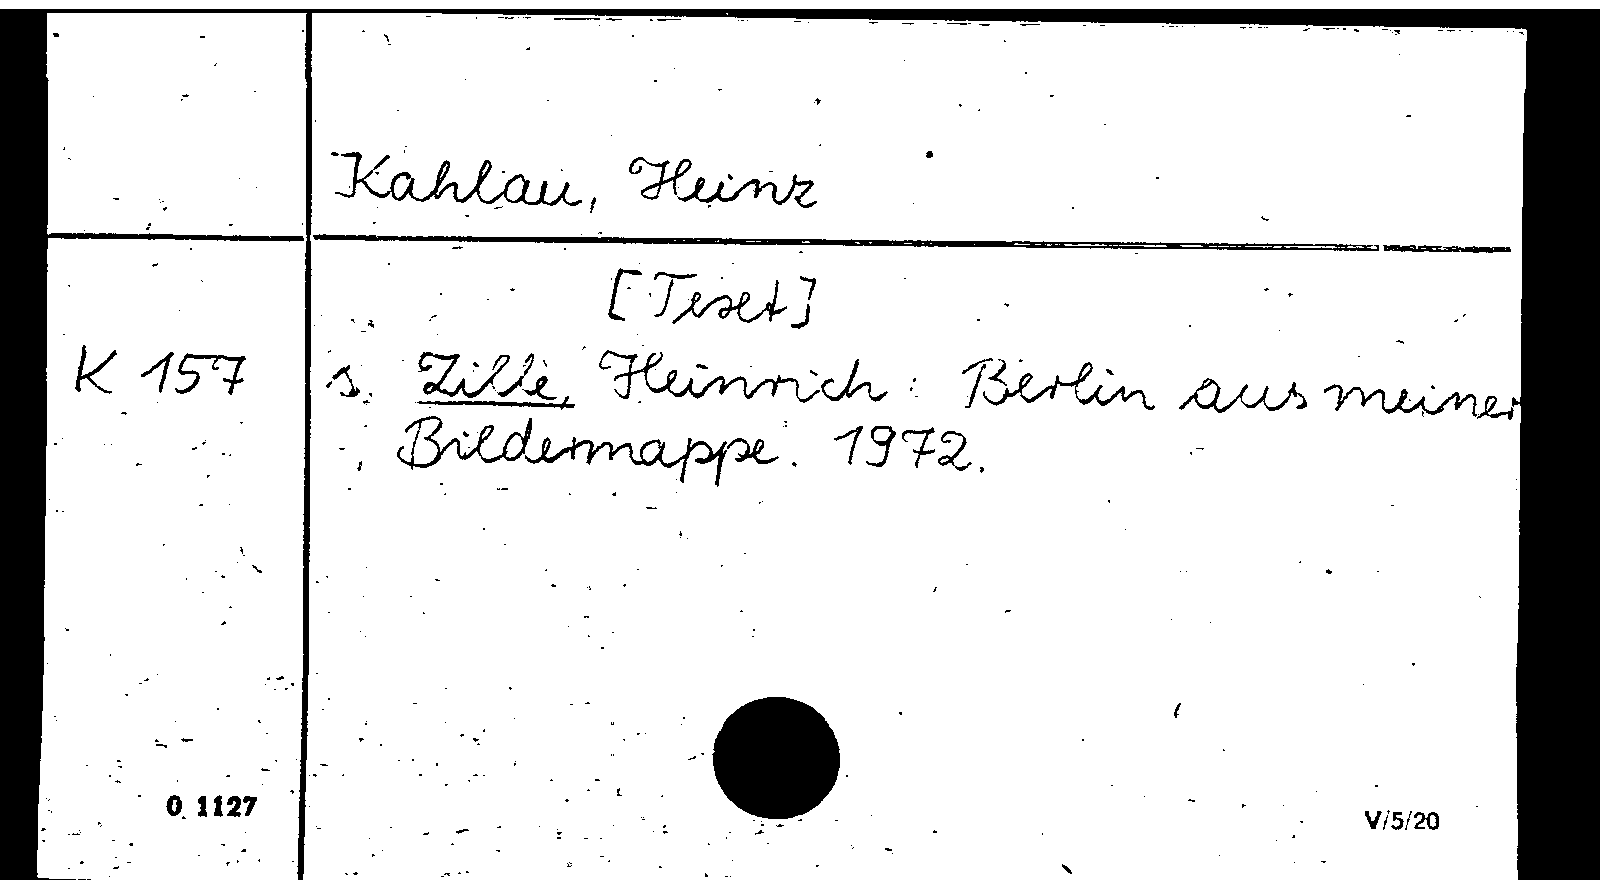 Kahlau, Heinz
[Text]
K 157 s. Zille, Heinrich: Berlin aus meiner
Bildermappe. 1972.
O 1127
V/5/20